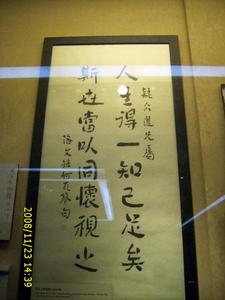 疑仌道兄屬
人生得一知己足矣
斯世當以同懷視之
洛文錄何瓦琴句
2008/11/23 14:39